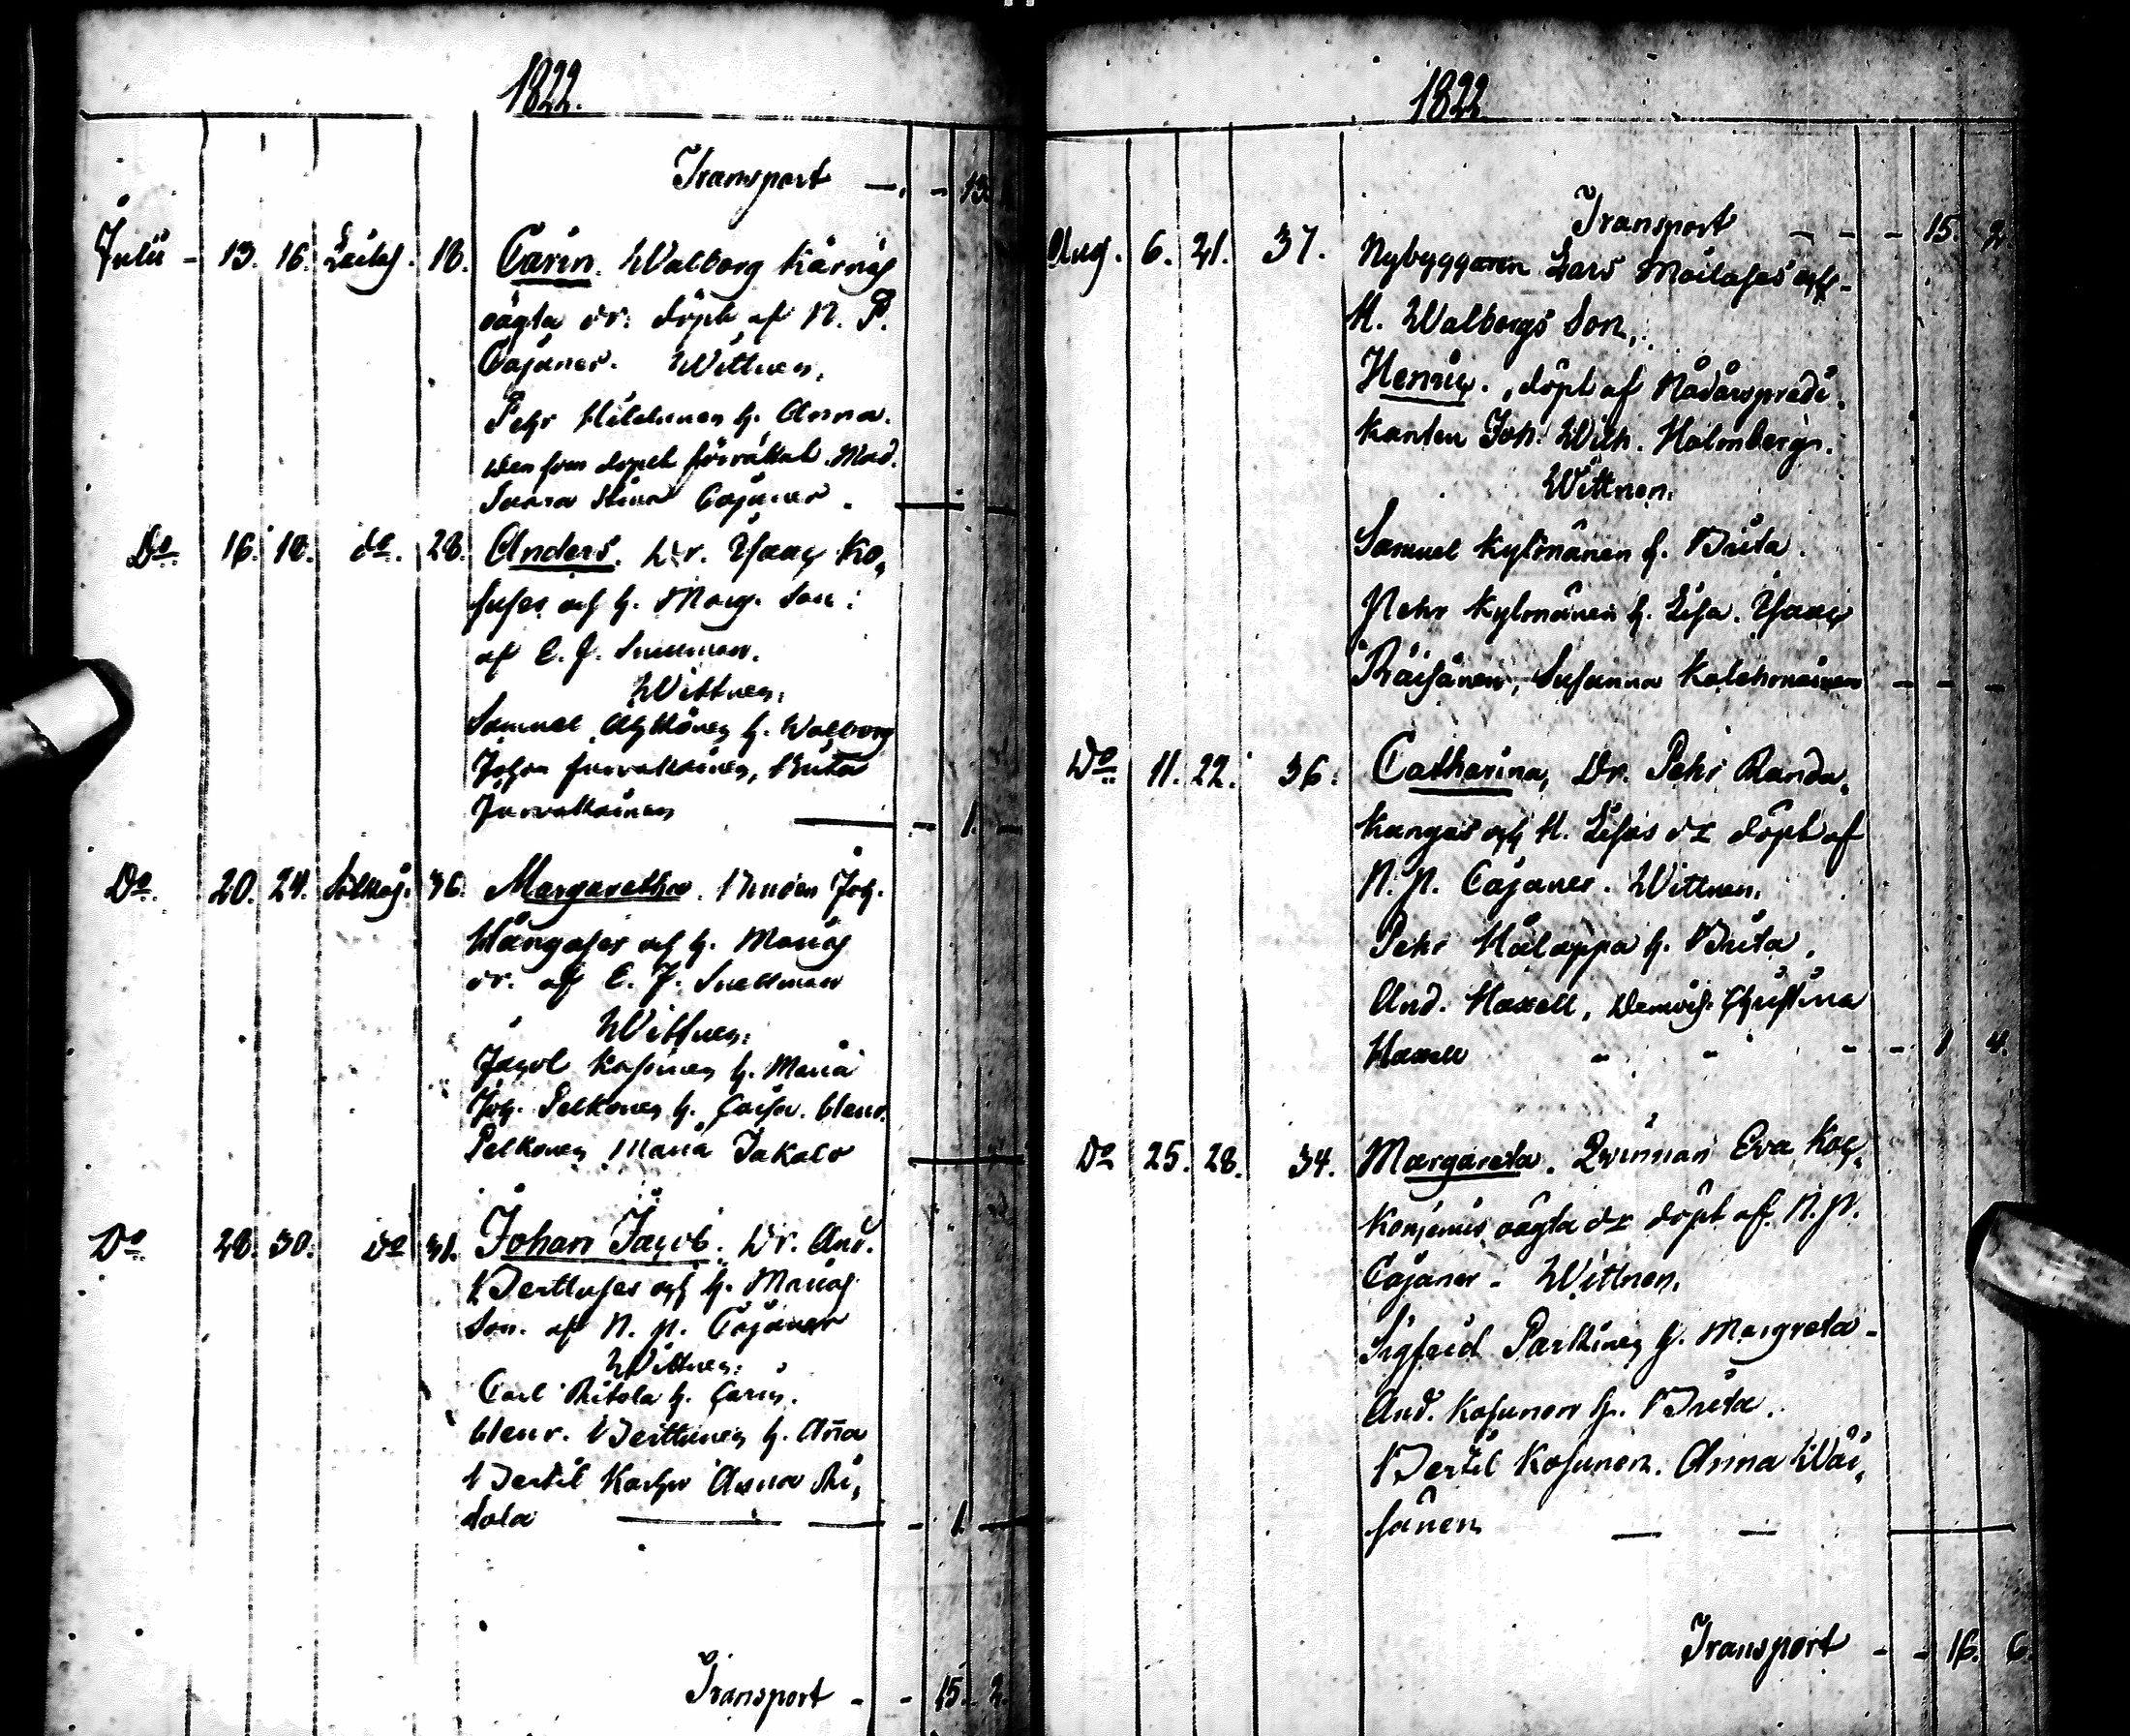 1822.
Transport - - 13.
Julii - 13. 16. 18. Carin. Walborg Kärnäs
oägta dr. döpt af N. P.
Cajaner. Wittnen,
Pehr Hildunen h. Anna.
den som dopet förrättat. Mad.
Stina Cajaner.
Do. 16. 18. do. 28. Anders. Dr. Isaac Ko,
och h. Marg. Son:
af E. J. Snellman.
Wittnen,
Samuel h. Walborg
Johan Juvakainen, Brita
Juvakainen - 1. -
Do. 20. 24. 36. Margaretha. Bonden Joh.
och h. Marias
dr. af E. J. Snellman
Wittnen:
Jacob Kosunen h. Maria
Joh. Pelkonen h. Caisa. Henr.
Pelkonen, Maria Jakola
Do 28. 30. Do 31. Johan Jacob. Dr. And.
och h. Marias
Son. af N. P. Cajaner
Wittnen:
Carl Ritola h. Carin.
Henr. Berttunen h. Aña
Bertil Anna Ri,
tola - 1. -
Transport - - 15. 2.
1822
Transport - - - 15. 2.
Aug. 6. 21. 37. Nybyggaren Lars Moilases och
H. Walborgs Son,
Henric. döpt af Nådårspredi,
kanten Joh. Wilh. Holmberg.
Wittnen.
Samuel Kylmänen h. Brita.
Pehr Kylmänen h. Lisa. Isaac
Räisänen, Susanna Kolehmainen - - -
Do 11. 22. 36. Catharina, Dr. Pehr Randa,
kangas och H. Lisas dr döpt af
N. P. Cajaner. Wittnen.
Pehr Hälappä h. Brita.
And. Haxell, Demois. Christina
Haxell - - - - 1 4.
Do 25. 28. 34. Margareta. Qvinnan Eva
oägta dr döpt af N. P.
Cajaner. Wittnen.
Sigfrid Partinen h. Margreta -
And. Kosunen h. Brita.
Bertil Kosunen. Anna Wäi,
sänen - -
Transport - - 16. 6.